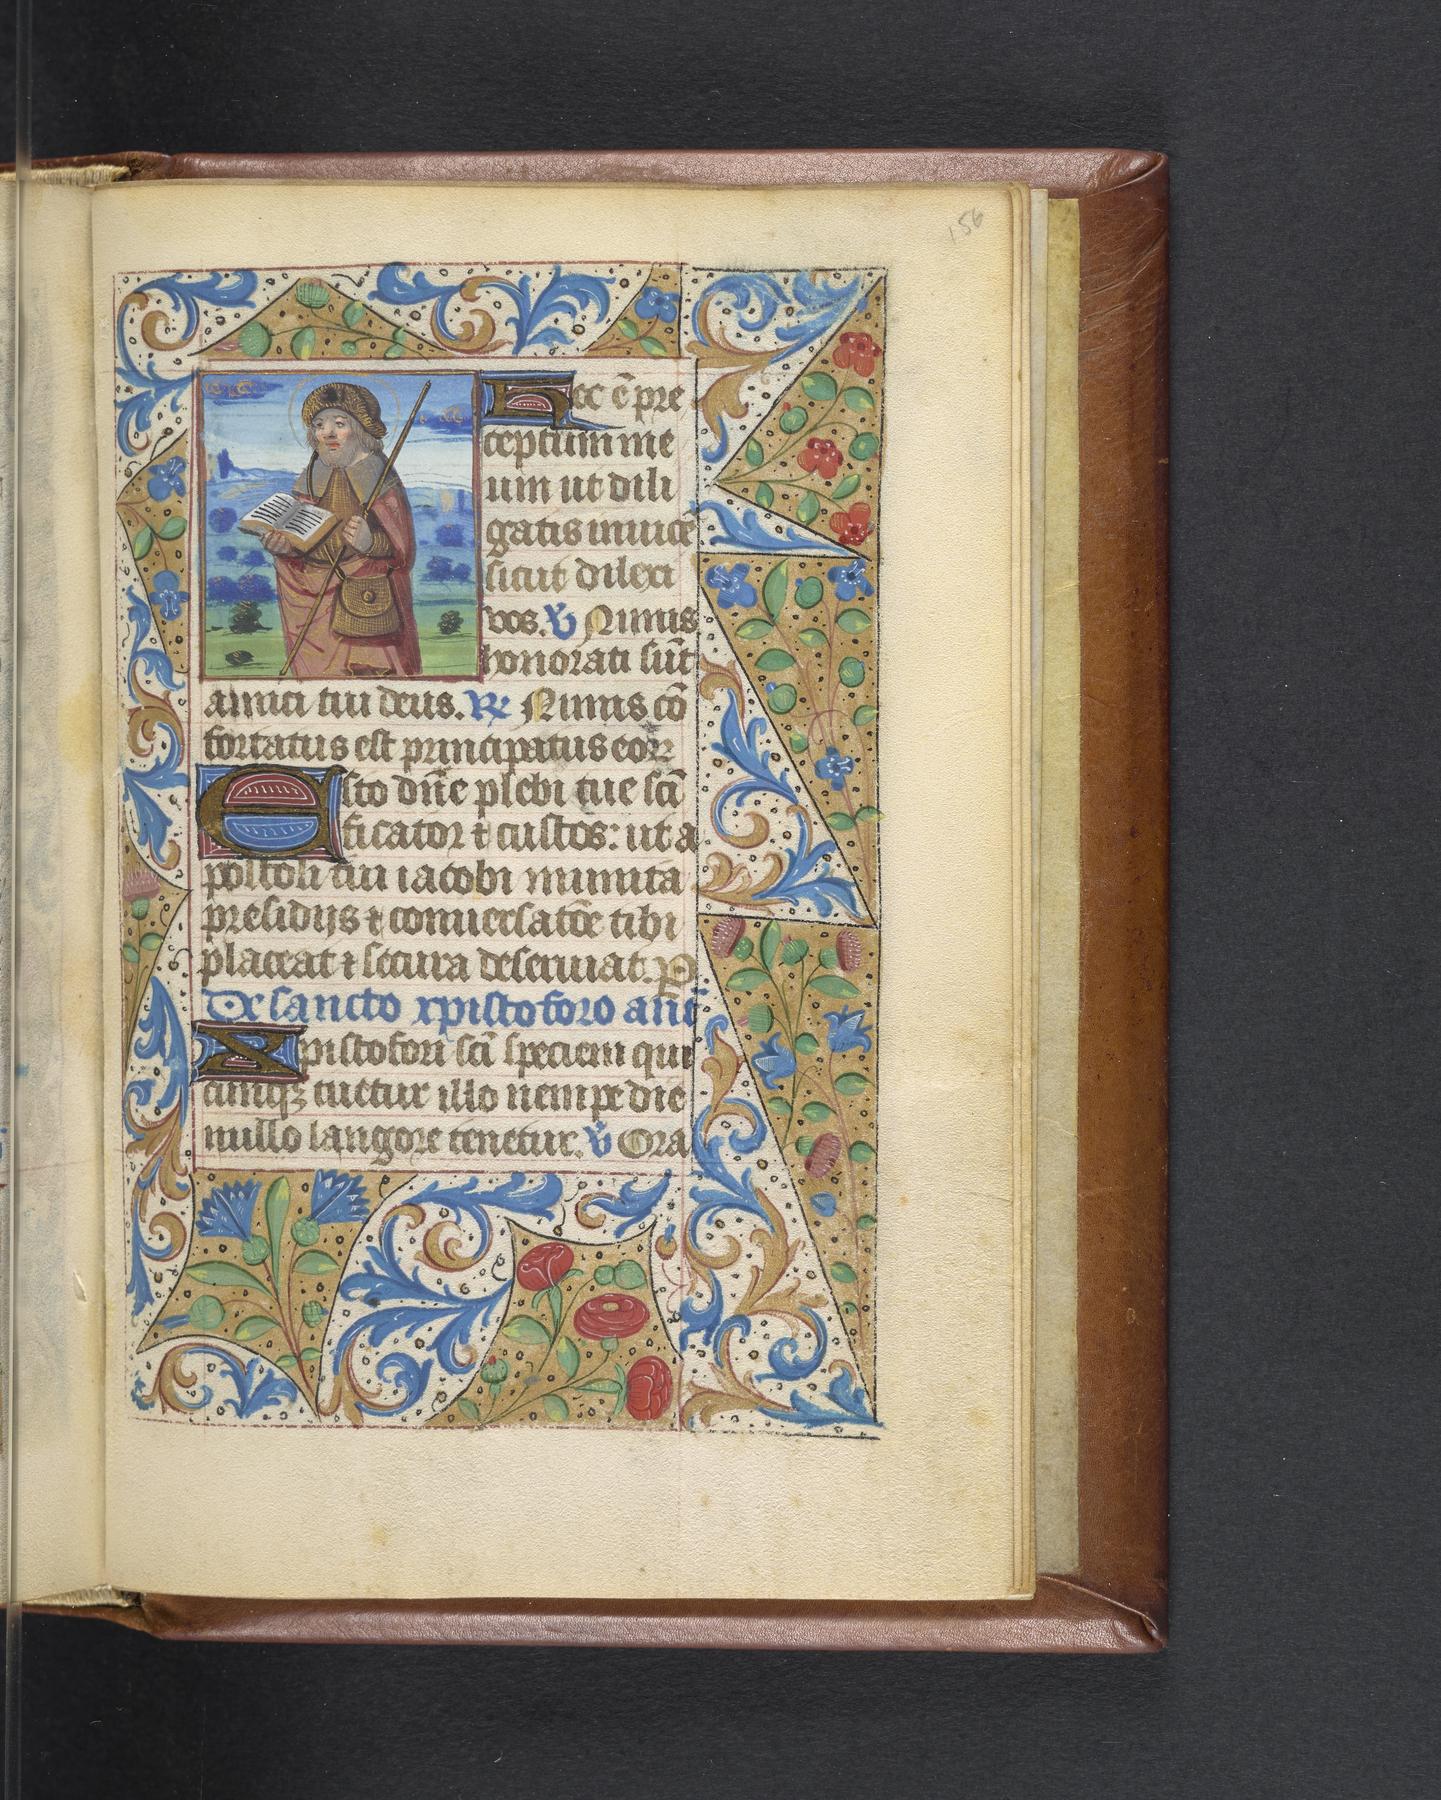 156
Hec ē pre
ceptum me
um ut dili
gatis inuicē
sicut dilexi
vos. ℣ Nimis
honorati sūt
amici tui deus. ℟ Nimis cō
fortatus est principatus eoꝝ
Esto dn̄e plebi tue scī
ficator ⁊ custos: ut a
postoli tui iacobi munita
presidijs ⁊ conuersatōe tibi
placeat ⁊ secura deseruiat. P
De sancto xpistoforo anā
Xpistofori scī speciem qui
cumqꝫ tuetur illo nempe die
nullo langore tenetur. ℣ Ora